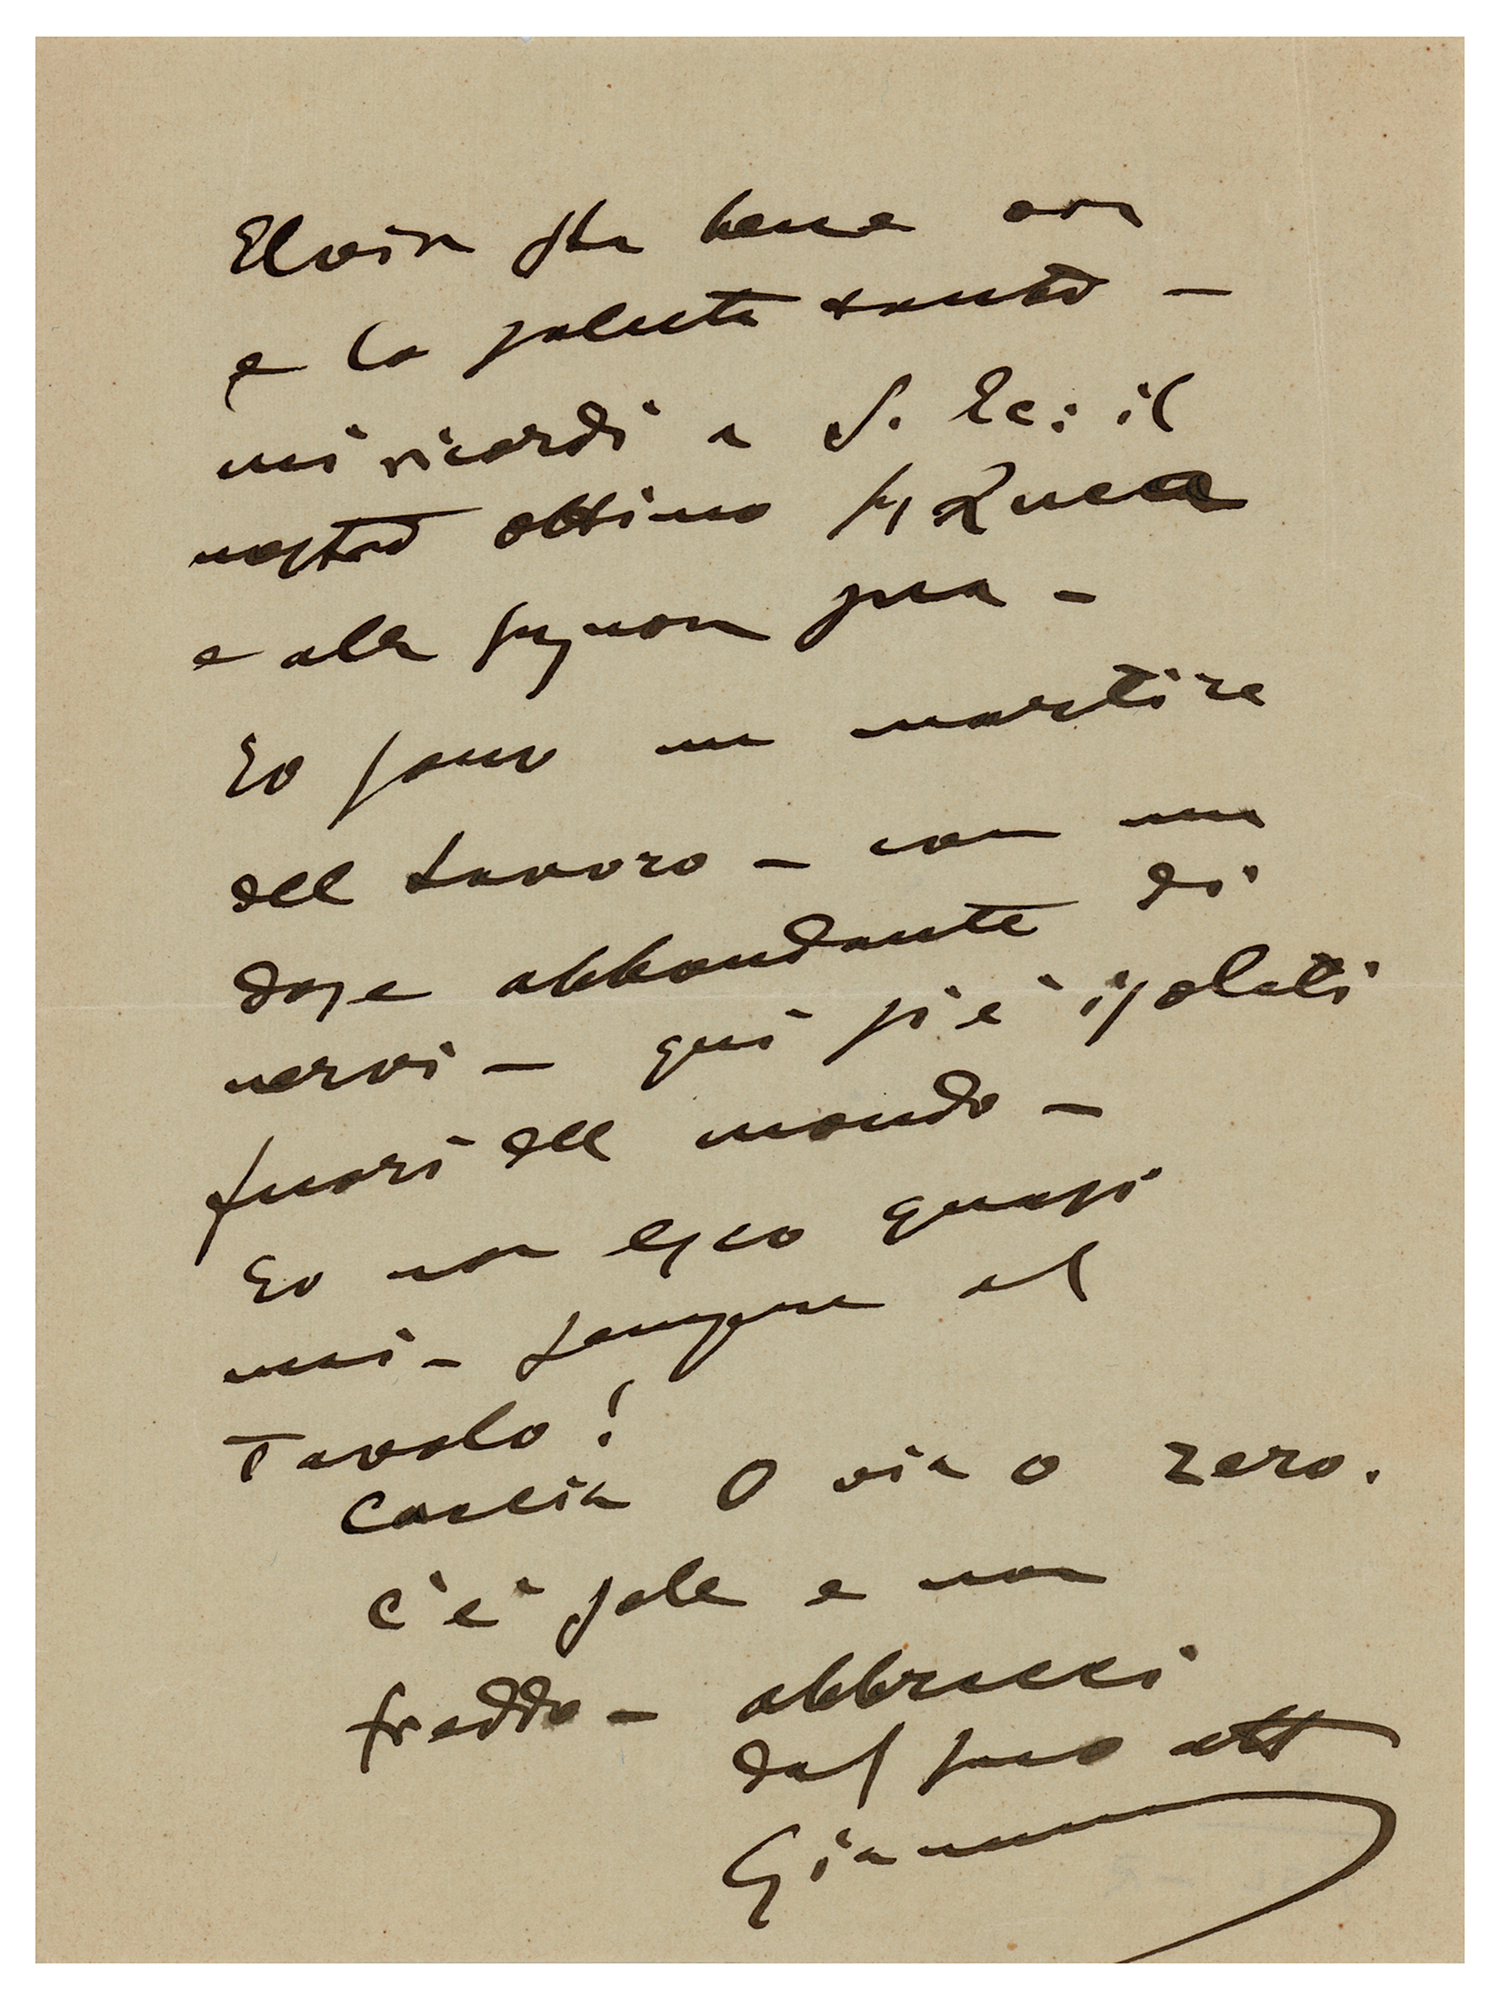 Elvira sta bene ora
e la saluta tanto –
mi ricordi a S. Ec: il
nostro ottimo Sig Lucca
e alla signora sua –
Io sono un martire
del lavoro – con una
dose abbondante di
nervi – qui si è isolati
fuori del mondo –
Io non esco quasi
mai – sempre al
Tavolo!
Caccia O via O zero.
C'è sole e non
freddo – abbracci
dal suo aff